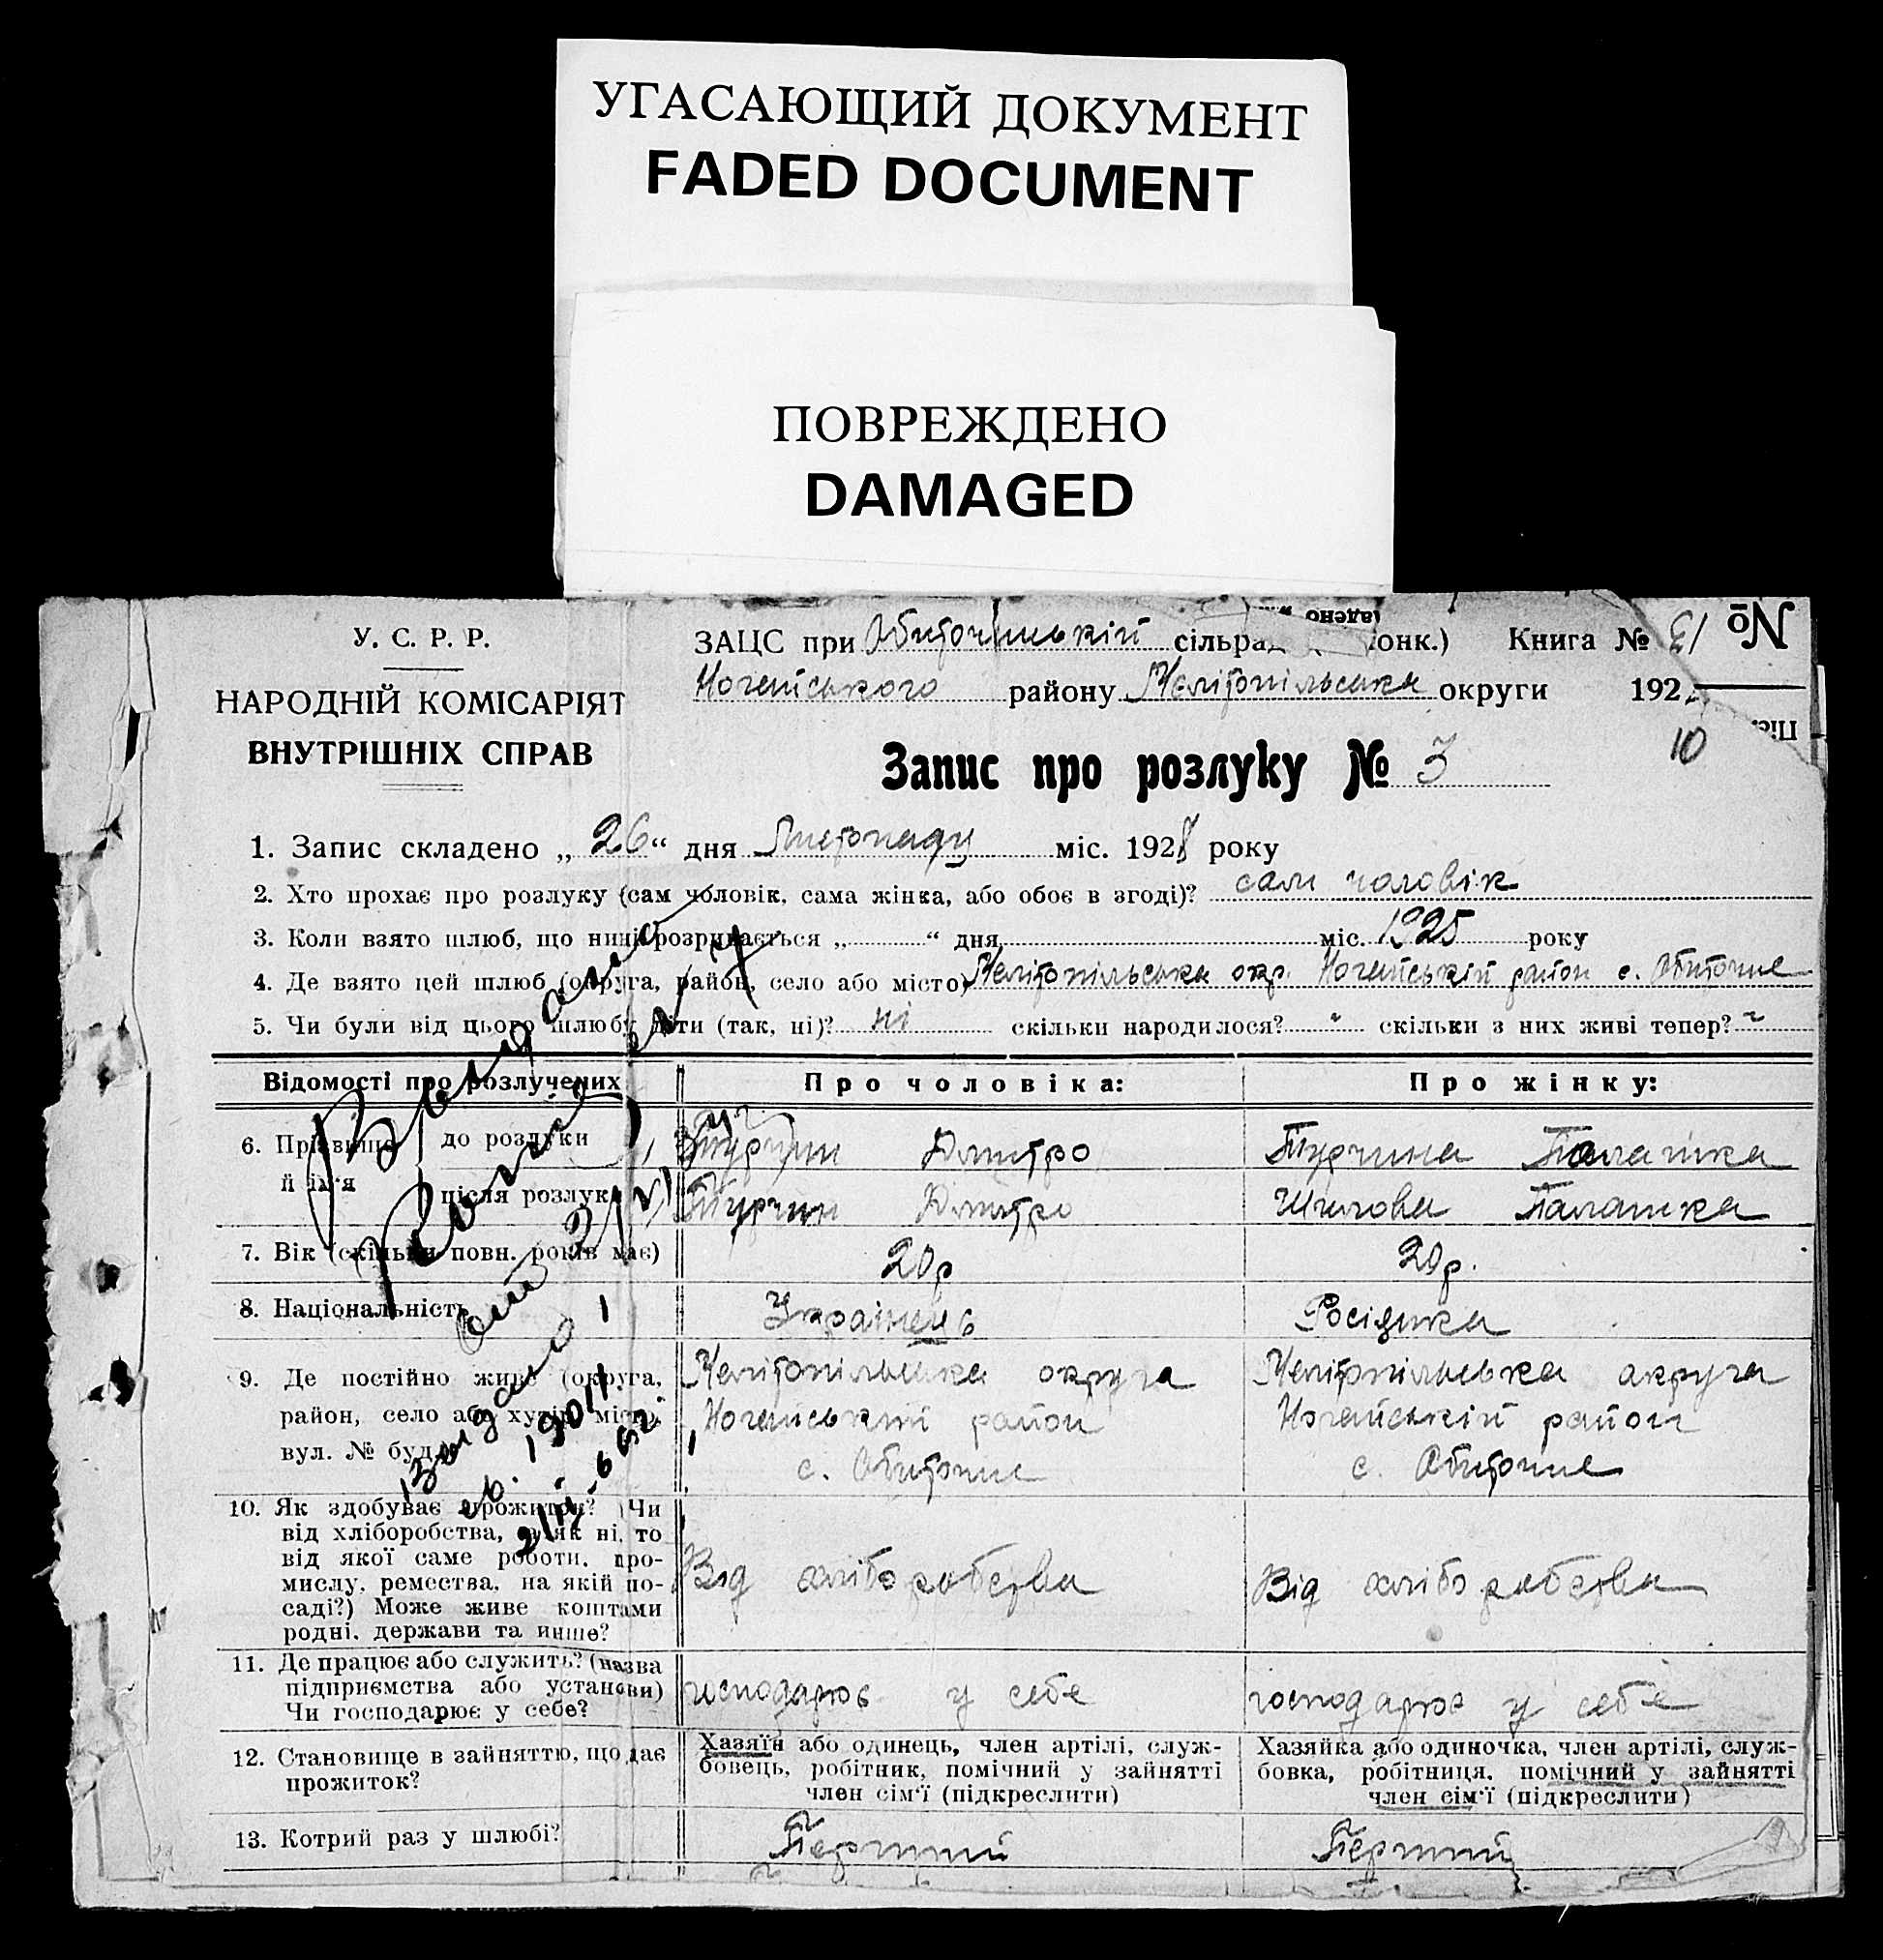 УГАСАЮЩИЙ ДОКУМЕНТ
FADED DOCUMENT
ПОВРЕЖДЕНО
DAMAGED
У. С. Р. Р.
НАРОДНІЙ КОМІСАРІЯТ
ВНУТРІШНІХ СПРАВ
ЗАЦС при Обиточнській сільрад онк.) Книга №
Ногайського району Меліпопільська округи 192
№
10
Запис про розлуку № 3
1. Запис складено „ 26 “ дня Листопаду міс. 1928 року
2. Хто прохає про розлуку (сам чоловік, сама жінка, або обоє в згоді)? сам чоловік
3. Коли взято шлюб, що нині розривається „ “ дня міс. 1925 року
4. Де взято цей шлюб (округа, район, село або місто) Меліпопільська окр. Ногайський район с. Обиточне
5. Чи були від цього шлюбу діти (так, ні)? ні скільки народилося? " скільки з них живі тепер? "
Відомості про розлучених Про чоловіка: Про жінку:
6. Прізвище й ім'я до розлуки Турчин Дмитро Турчина Палашка
після розлуки Турчин Дмитро Шилова Палашка
7. Вік (скільки повн. років має) 20р 20р.
8. Національність Українець Росіянка
9. Де постійно живе (округа, район, село або хутір, місто, вул. № буд.)
Меліпопільська округа
Ногайський район
с. Обиточне
Меліпопільська округа
Ногайський район
с. Обиточне
10. Як здобуває прожиток? (Чи
від хліборобства, а як ні, то
від якої саме роботи, про-
мислу, ремества, на якій по-
саді?) Може живе коштами
родні, держави та инше?
Від хліборобства
Від хліборобства
11. Де працює або служить? (назва
підприємства або установи)
Чи господарює у себе?
господарює у себе
господарює у себе
12. Становище в зайняттю, що дає
прожиток?
Хазяїн або одинець, член артілі, служ-
бовець, робітник, помічний у зайнятті
член сім'ї (підкреслити)
Хазяйка або одиночка, член артілі, служ-
бовка, робітниця, помічний у зайнятті
член сім'ї (підкреслити)
13. Котрий раз у шлюбі? Перший Перший